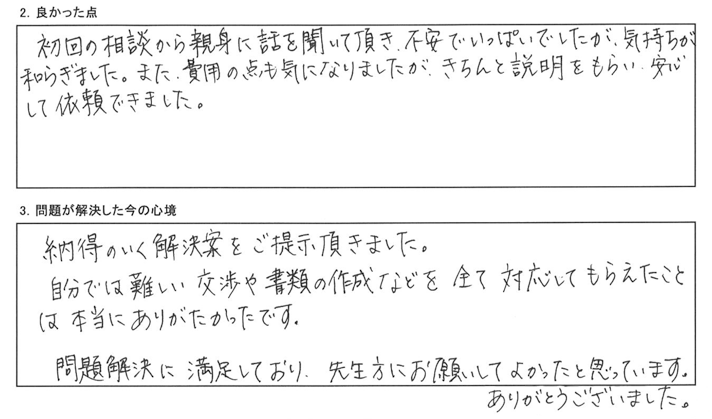 2. 良かった点
初回の相談から親身に話を聞いて頂き、不安でいっぱいでしたが、気持ちが
和らぎました。また、費用の点も気になりましたが、きちんと説明をもらい、安心
して依頼できました。
3. 問題が解決した今の心境
納得のいく解決案をご提示頂きました。
自分では難しい交渉や書類の作成などを全て対応してもらえたこと
は本当にありがたかったです。
問題解決に満足しており、先生方にお願いしてよかったと思っています。
ありがとうございました。